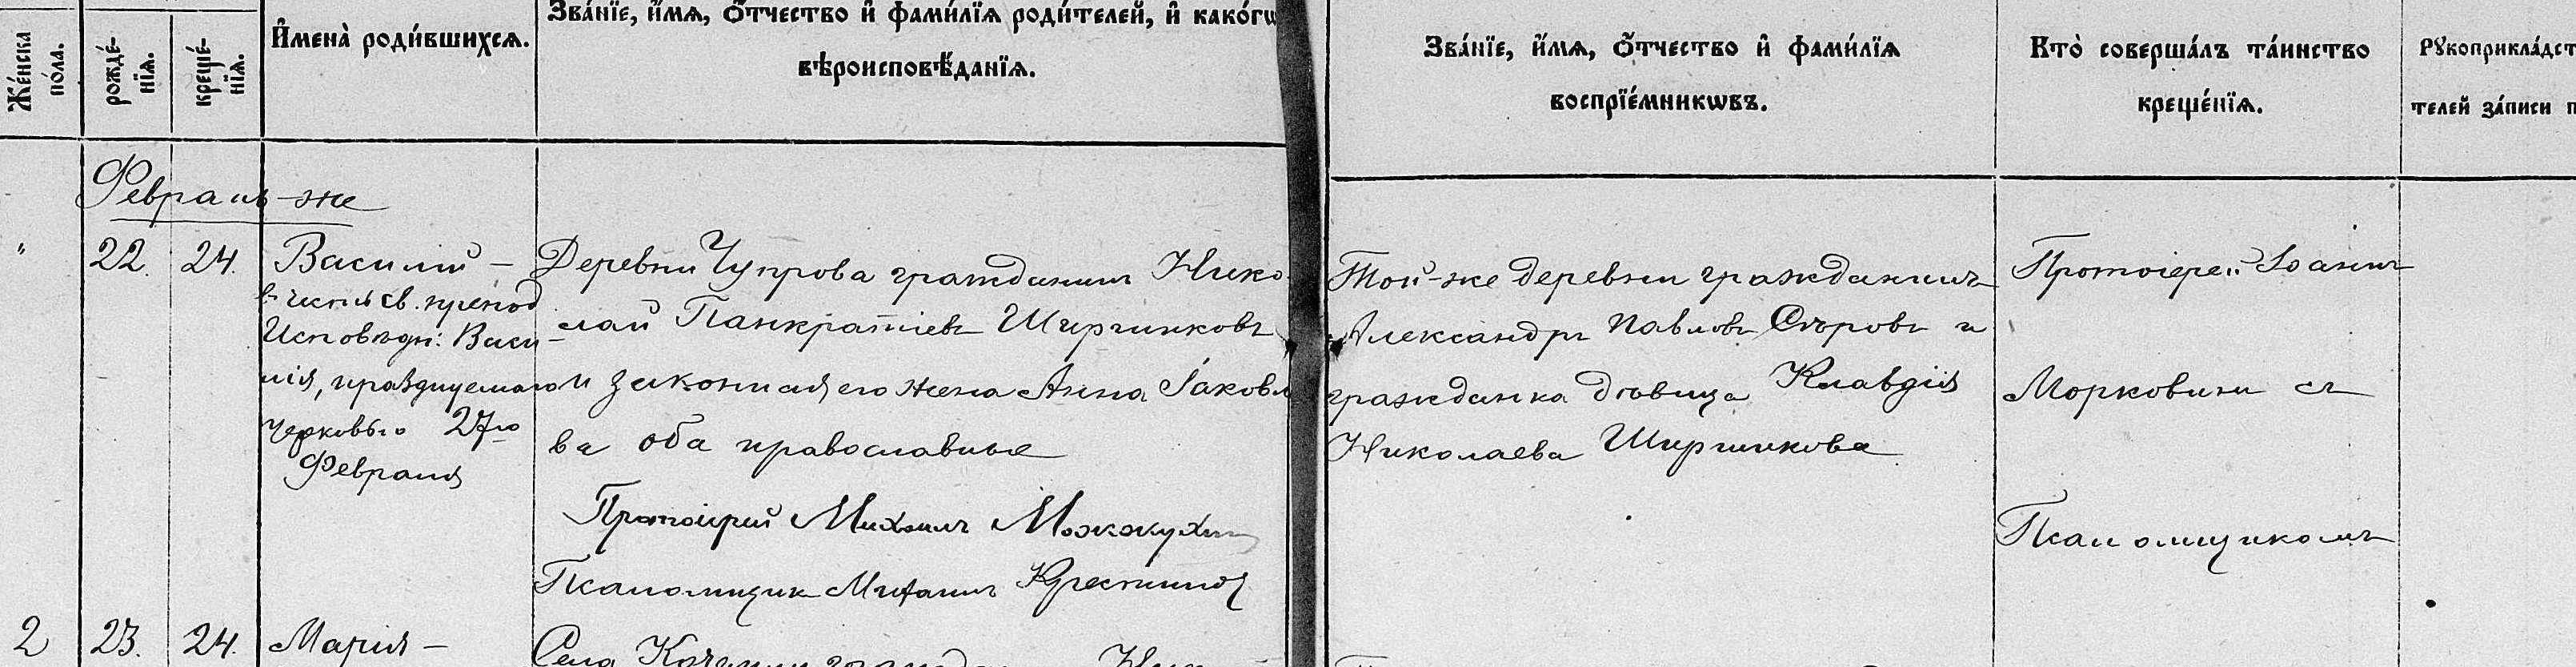 Же́нска по́ла.
рожде́-нїѧ.
креще́-нїѧ.
И҆мена̀ роди́вшихсѧ.
Зва́нїе, и҆́мѧ, ѻ҆́тчество и҆ фами́лїѧ роди́телей, и҆ како́гѡ
вѣроисповѣ́данїѧ.
Зва́нїе, и҆́мѧ, ѻ҆́тчество и҆ фами́лїѧ
воспрїе́мникѡвъ.
Кто̀ соверша́лъ та́инство
креще́нїѧ.
Рꙋкоприкла́дст
телей за́писи п
Февраль-же
" 22. 24.
Василій –
въ честь св. препод
Исповѣдн: Васи-
лія, празднуемаго
Церковью 27го
Февраля
Деревни Чупрова гражданинъ Нико-
лай Панкратіевъ Ширшиковъ
и законная его жена Анна Іаковле
ва оба православные
Протоіерей Михаилъ Можжухин
Псаломщик Михаилъ
Той-же деревни гражданинъ
Александръ Павловъ Сѣровъ и
гражданка дѣвица Клавдія
Николаева Ширшикова
Протоіерей Іоаннъ
Морковинъ съ
Псаломщикомъ
2 23. 24.
Марія –
Села